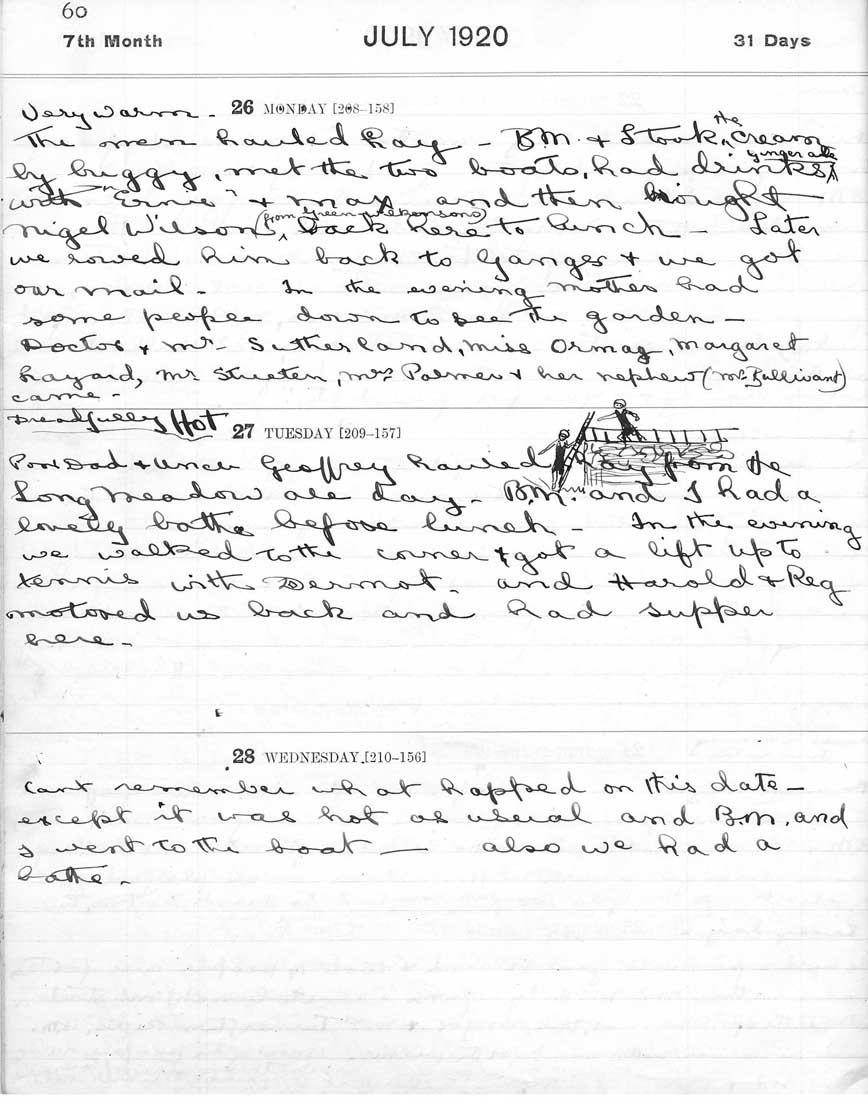 60
7th Month JULY 1920 31 Days
Very warm - 26 MONDAY [208-158]
The men hauled hay - B.M. & I took the cream
by buggy, met the two boats, had drinks ginger ale
with "Ernie" & max and then brought
Nigel Wilson (from Green Wilkensons) back here to lunch - Later
we rowed him back to Ganges & we got
our mail - In the evening mother had
some people down to see the garden -
Doctor & Mrs Sutherland, Miss Ormag, Margaret
Layard, Mr Streeten, Mrs Palmer & her nephew (Mr Bullivant)
came -
Dreadfully Hot 27 TUESDAY [209-157]
Poor Dad & Uncle Geoffrey hauled hay from the
Long Meadow all day - B.M. and I had a
lovely bathe before lunch - In the evening
we walked to the corner & got a lift up to
tennis with Dermot - and Harold & Reg
motored us back and had supper
here -
28 WEDNESDAY [210-156]
Cant remember what happed on this date -
except it was hot as usual and B.M. and
I went to the boat - also we had a
bathe -